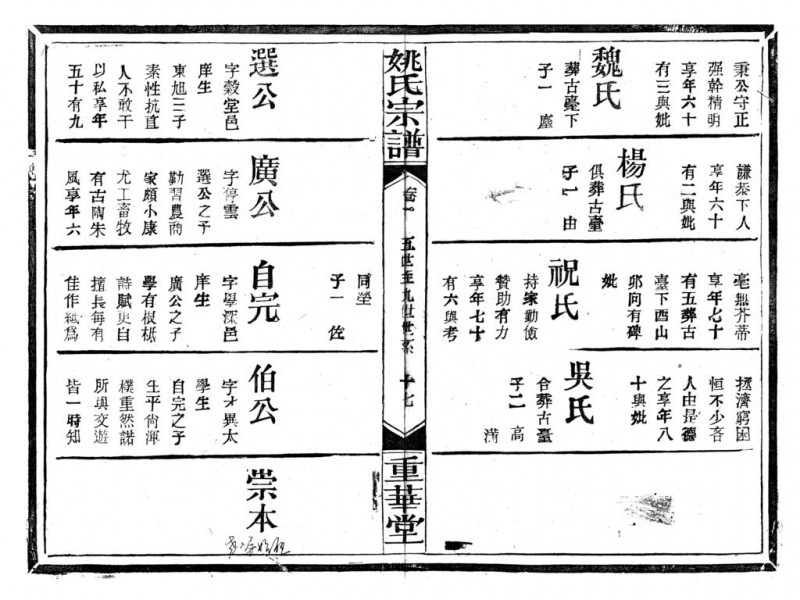 秉公守正
强幹精明
享年六十
有三與妣
魏氏
葬古臺下
子一 塵
謙恭下人
享年六十
有二與妣
楊氏
俱葬古臺
子一 由
毫無芥蒂
享年七十
有五葬古
臺下酉山
卯向有碑
妣
祝氏
持家勤儉
贊助有力
享年七十
有六與考
拯濟窮困
恒不少吝
人由是德
之享年八
十與妣
吳氏
合葬古臺
子二 高
滿
姚氏宗譜
卷一
五世至九世世系
十七
重華堂
選公
字毅堂邑
庠生
東旭三子
素性抗直
人不敢干
以私享年
五十有九
廣公
字停雲
選公之子
勤習農商
家頗小康
尤工畜牧
有古陶朱
風享年六
同塋
子一 佐
自完
字學深邑
庠生
廣公之子
學有根柢
詩賦更自
擅長每有
佳作輒爲
伯公
字才異太
學生
自完之子
生平尚渾
樸重然諾
所與交遊
皆一時知
崇本